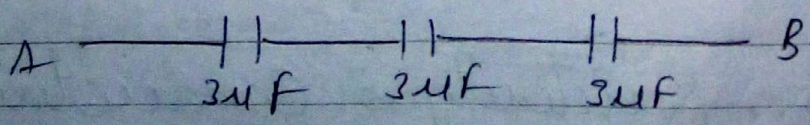 A B
3μF 3μF 3μF